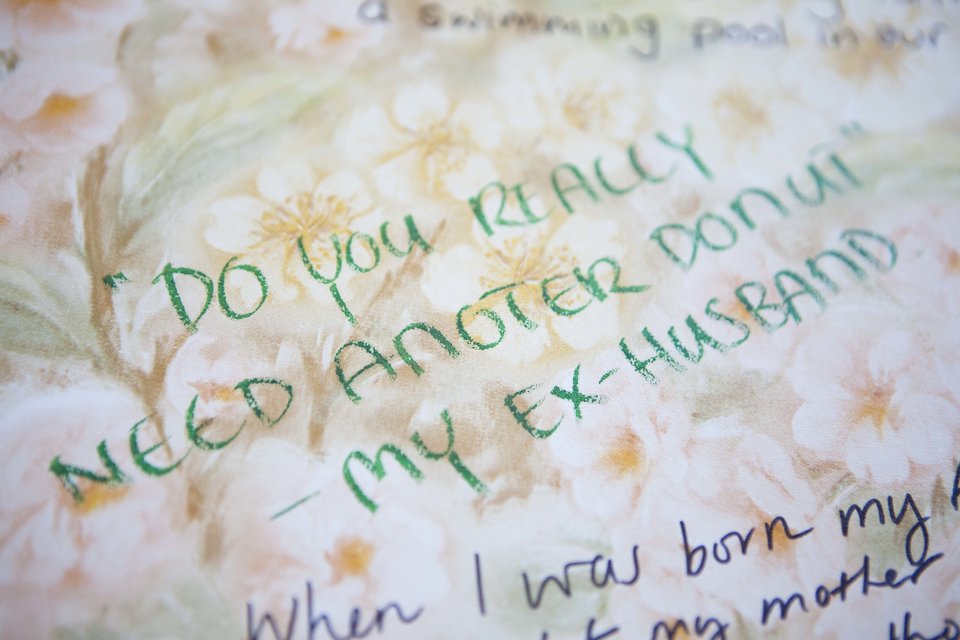 a swimming pool in our
"DO YOU REALLY
NEED ANOTER DONUT"
- MY EX-HUSBAND
When I was born my
my mother